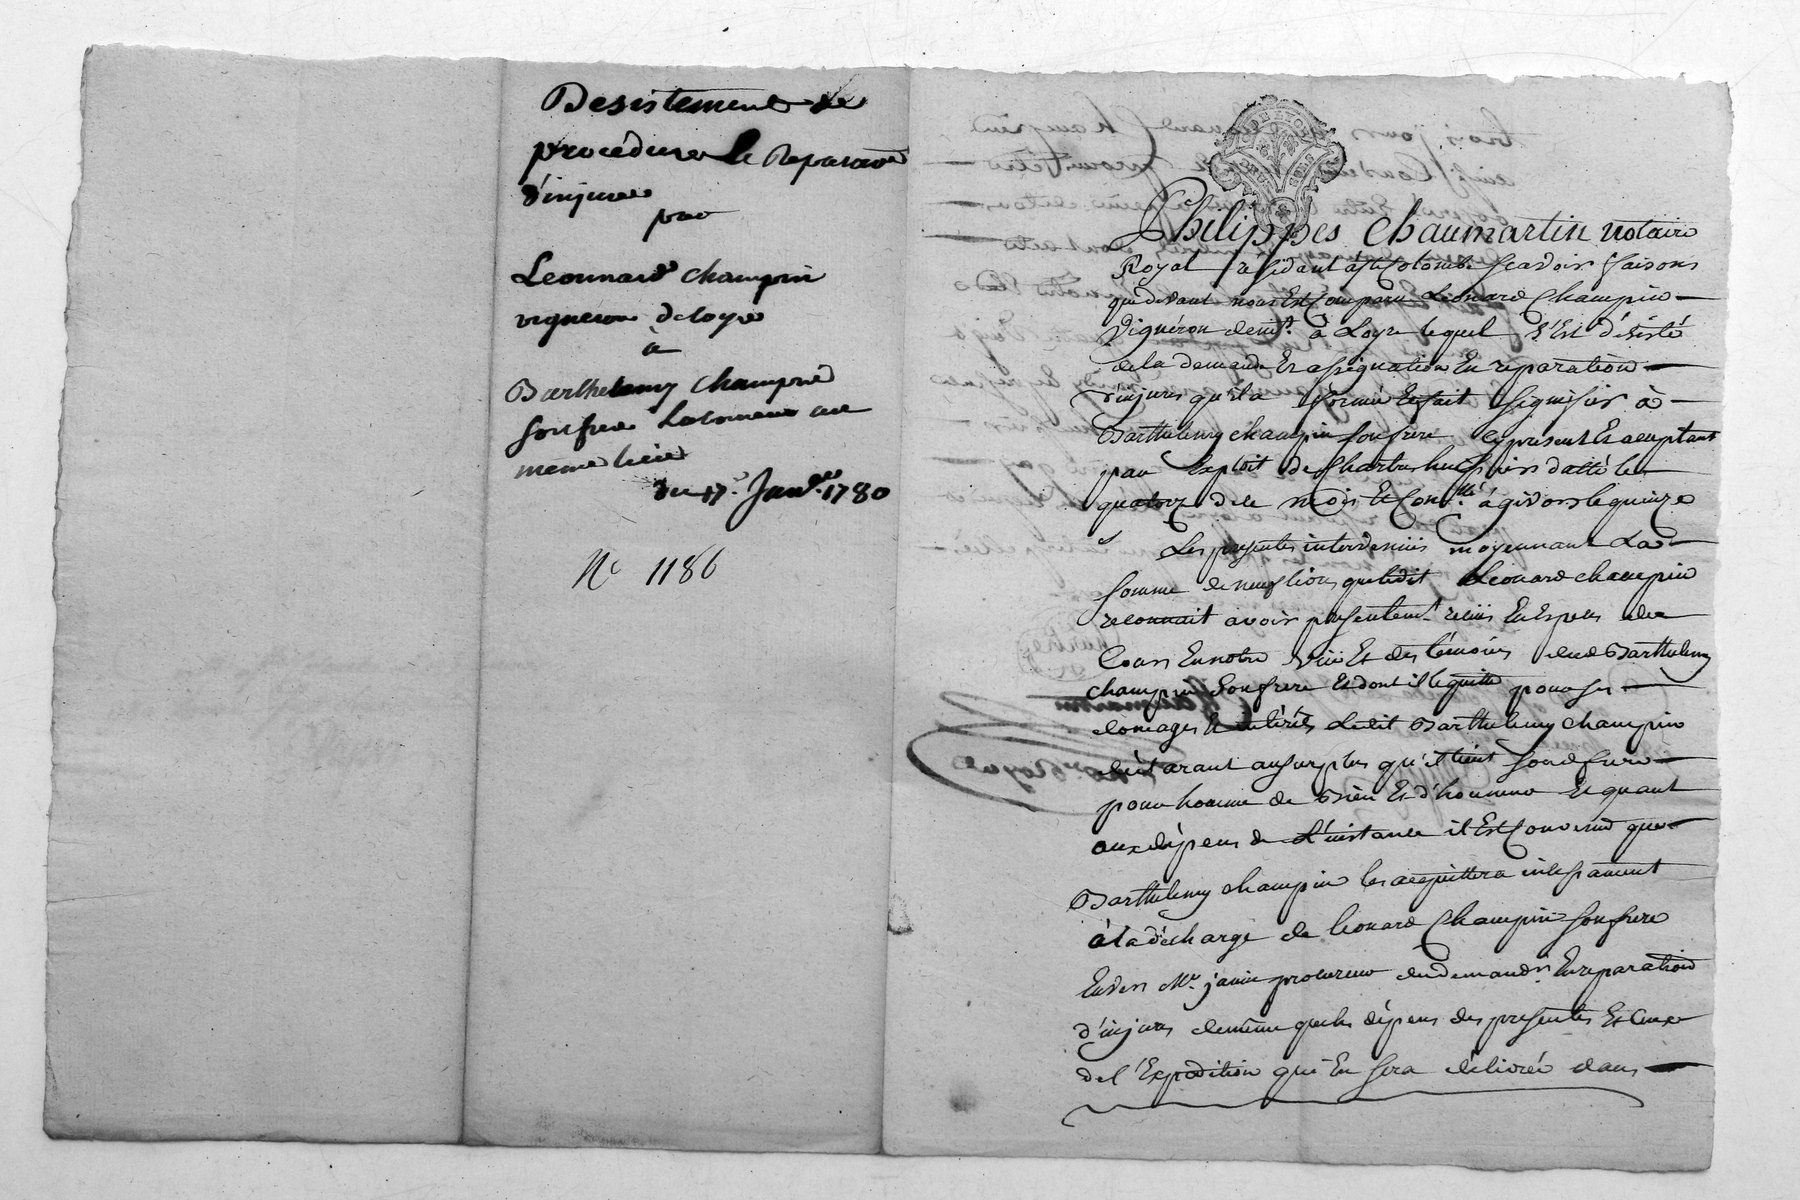 Desistement de
procédure de Reparaõn
d'injures
par
Leonnard Champin
vigneron de Loyre
à
Barthelemy Champin
son frere au
meme lieu
du 17e. Janvr. 1780
No 1186
Philippes Chaumartin notaire
Royal résidant à Ste Colombe scavoir faisons
que devant nous Est Comparu Léonard Champin
Vigneron demt. à Loyre lequel s'Est désisté
de la demande Et assignation En réparation
d'injures qu'il a formée Et fait signifier à
Barthelemy champin son frere cy present Et acceptant
par Exploit de huissier datté le
quatorze de ce mois Et Conllé à givors le quinze
Les presentes intervenües moyennant La
somme de neuf livres que ledit Léonard champin
reconnait avoir presentemt. reçüe En Especes de
Cours En notre vüe Et des témoins dud Barthelemy
champin son frere Et dont il le quitte pour ses
domages Et intérêts Ledit Barthelemy champin
déclarant au surplus qu'il tient son d frere
pour homme de Bien Et d'honneur Et quant
aux dépens de L'instance il Est Convenu que
Barthelemy champin les acquittera
à la décharge de Léonard Champin son frere
Envers Mr. janin procureur du demandr. En reparation
d'injures de même que les dépens des presentes Et Ceux
de l'Expédition qui En sera délivrée dans